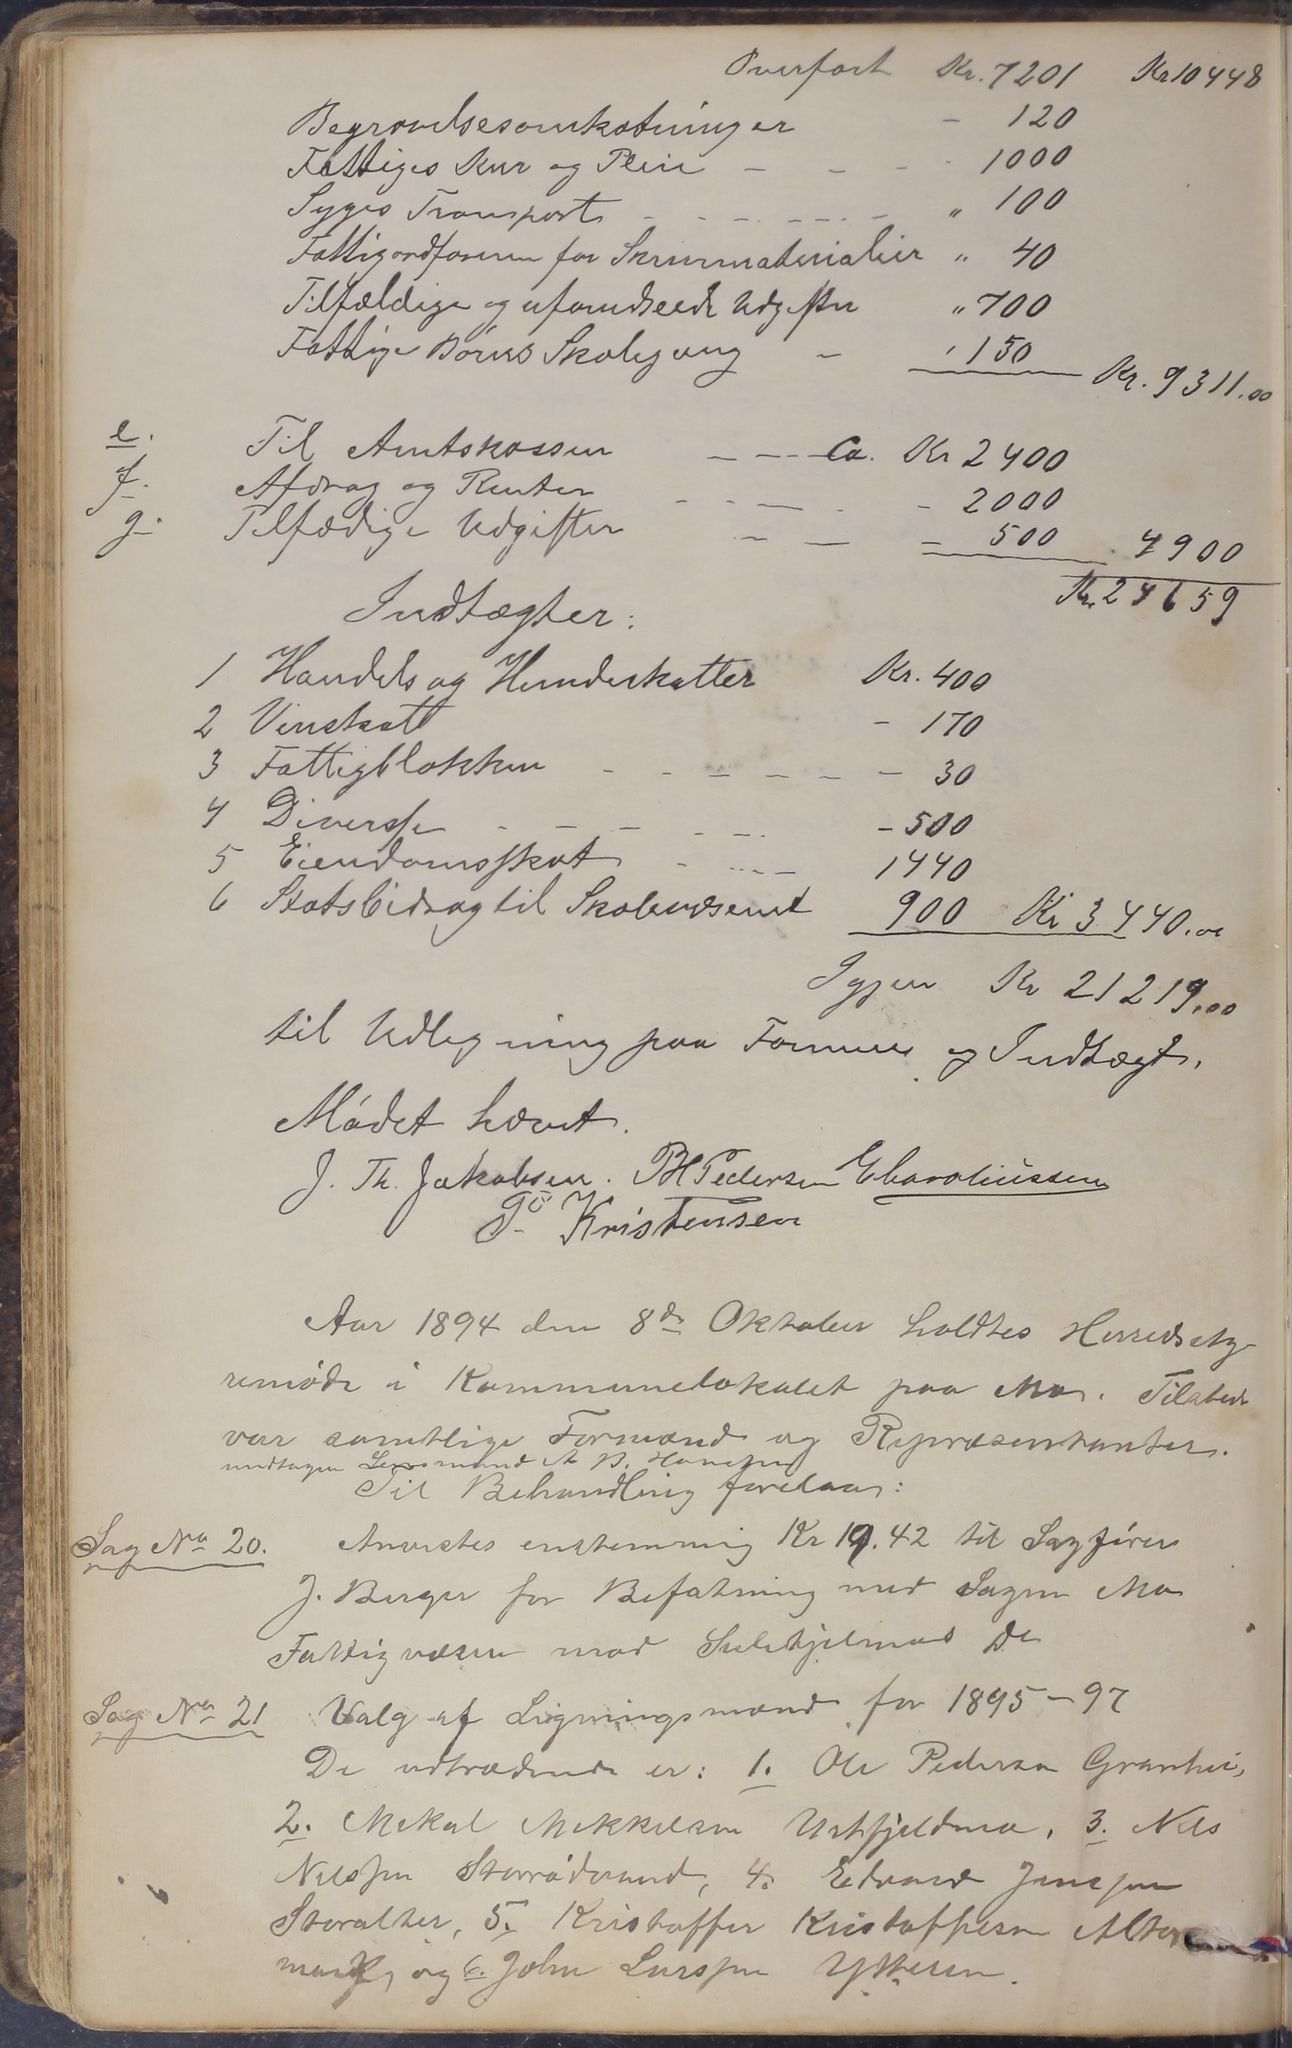 Overført Kr. 7201 Kr 10448
Begravelsesomkostninger - 120
Fattiges Kur og Pleie - - - - 1000
Syges Transport - - - - - " 100
Fattigordføreren for Skrivmaterialier " 40
Tilfældige og uforudseede Udgifter " 700
Fattige Børns Skolegang - " 150 Kr. 9311.00
e. Til Amtskassen - - - Ca. Kr 2400
f. Afdrag og Renter - - - - 2000
g. Tilfædige Udgifter - - - 500 4900
Kr. 24659
Indtægter:
1 Handels og Hundeskatter Kr. 400
2 Vinskat - 170
3 Fattigblokken - - - - - - 30
4 Diverse - - - - - - 500
5 Eiendomsskat - - - 1440
6 Statsbidrag til Skolevæsenet 900 Kr 3440.00
Igjen Kr 21219.00
til Udlegning paa Formue og Indtægt.
Mødet hævet.
J. Th. Jakobsen. PH Pedersen E Caroliussen
P. Kristensen
Aar 1894 den 8de Oktober holdtes Herredssty-
remøde i Kommunelokalet paa Mo. Tilstede
var samtlige Formænd og Repræsentanter.
undtagen Lensmand A B. Hanssen
Til Behandling forelaa:
Sag No 20. Anvistes enstemmig Kr 19.42 til Sagfører
J. Berger for Befatning med Sagen Mo
Fattigvæsen mod Sulitjelmas
Sag No 21 Valg af Ligningsmænd for 1895-97
De udtrædende er: 1. Ole Pedersen Granhei,
2. Mekal Mikkelsen Urtfjeldmo, 3. Nils
Nilssen Storrødsand, 4. Edvard Jenssen
Storalter, 5. Kristoffer Kristoffersen Alter
mark, og 6. John Larssen Ytteren.